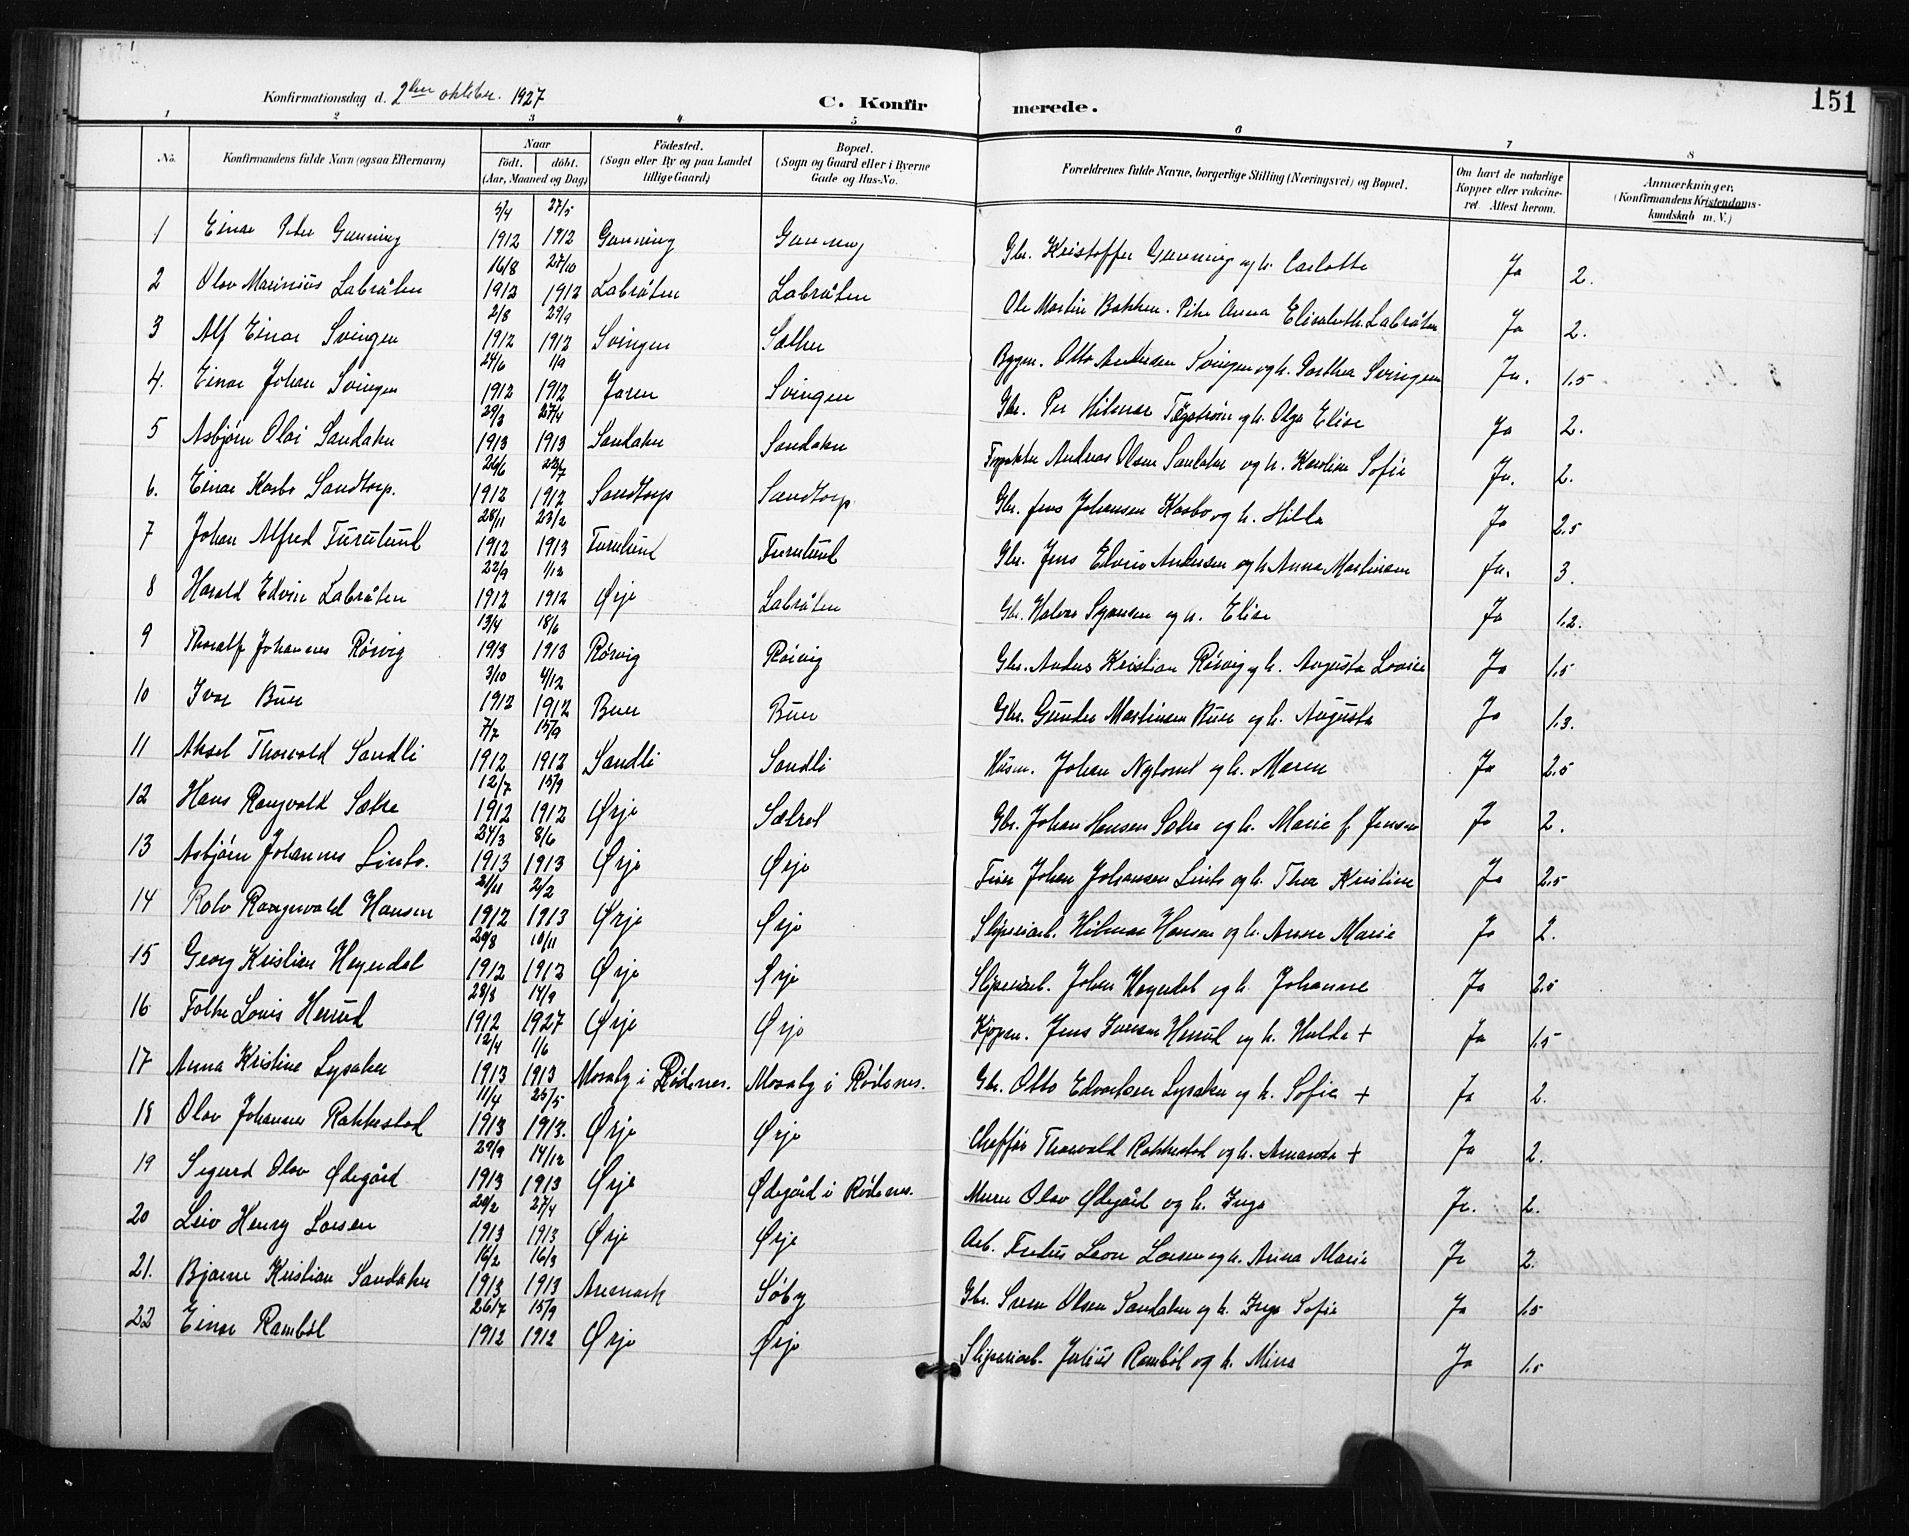 151
Konfirmationsdag d. 2den oktober 1927 C. Konfirmerede.
1 2 3 4 5 6 7 8
No. Konfirmandens fulde Navn (ogsaa Efternavn) Naar født. døbt. (Aar, Maaned og Dag) Fødested. (Sogn eller By og paa Landet tillige Gaard) Bopæl. (Sogn og Gaard eller i Byerne Gade og Hus-No. Forældrenes fulde Navne, borgerlige Stilling (Næringsvei) og Bopæl. Om havt de naturlige Kopper eller vakcineret. Attest herom. Anmærkninger. (Konfirmandens Kristendomskundskab m. V.)
1 Einar Peter Gunning 5/4 1912 27/5 1912 Gunning Gunning Gbr. Kristoffer Gunning og h. Carlotte Ja 2.
2 Olav Marinius Labråten 16/8 1912 27/10 1912 Labråten Labråten Ole Martin Bakken. Pike Anna Elisabeth Labråten Ja 2.
3 Alf Einar Svingen 2/8 1912 29/9 1912 Svingen Sæther Byggm. Otto Andersen Svingen og h. Svingen Ja. 1.5
4. Einar Johan Svingen 24/6 1912 1/9 1912 Jaren Svingen Gbr. Per Hilmar og h. Olga Elise Ja 2.
5 Asbjørn Olai Sandaker 29/3 1913 27/4 1913 Sandaker Sandaker Andreas Olsen Sandaker og h. Karoline Sofie Ja. 2.
6. Einar Kasbo Sandtorp. 26/6 1912 22/7 1912 Sandtorp Sandtorp Gbr. Jens Johansen Kasbo og h. Hilda Ja 2.5
7 Johan Alfred Furulund 28/11 1912 23/2 1913 Furulund Furulund Gbr. Jens Edvin Andersen og h. Anna Martinsen Ja. 3.
8 Harald Edvin Labråten 22/9 1912 1/12 1912 Ørje Labråten Gbr. Halvor og h. Elise Ja 1.2.
9 Thoralf Johannes Rørvig 13/4 1913 18/6 1913 Rørvig Rørvig Gbr. Anders Kristian Rørvig og h. Augusta Lovise Ja 1.5
10 Ivar Buer 3/10 1912 4/12 1912 Buer Buer Gbr. Gunder Martinsen Buer og h. Augusta Ja 1.3.
11 Aksel Thorvald Sandli 7/7 1912 15/9 1912 Sandli Sandli Husm. Johan og h. Maren Ja 2.5
12 Hans Rangvald Sætre 12/7 1912 15/9 1912 Ørje Gbr. Johan Hansen Sætre og h. Marie f. Jensen Ja 2.
13 Asbjørn Johannes Linto. 24/3 1913 8/6 1913 Ørje Ørje Johan Johansen Linto og h. Thea Kristine Ja 2.5
14 Rolv Rangvald Hansen 21/11 1912 2/2 1913 Ørje Ørje Sliperiarb. Hilmar Hansen og h. Anne Marie Ja 2.
15 Georg Kristian Heyerdal 20/8 1912 10/11 1912 Ørje Ørje Sliperiarb. Johan Heyerdal og h. Johanne Ja 2.5
16 Folke Louis Herrud 28/8 1912 14/9 1927 Ørje Ørje Kjøpm. Jens Iversen Herrud og h. Hulda + Ja 1.5
17 Anna Kristine Lysaker 12/4 1913 1/6 1913 Mosaby i Rødenes. Mosaby i Rødenes. Gbr. Otto Edvardsen Lysaker og h. Sofie + Ja 2.
18 Olav Johannes Rakkestad 11/4 1913 25/5 1913. Ørje Ørje Chaffør Thorvald Rakkestad og h. Amanda + Ja 2.
19 Sigurd Olav Ødegård 29/9 1913 14/12 1913 Ørje Ødegård i Rødenes. Murer Olav Ødegård og h. Inga Ja. 2.
20 Leiv Henry Larsen 20/2 1913 27/4 1913 Ørje Ørje Arb. Leon Larsen og h. Anna Marie Ja 2.
21. Bjarne Kristian Sandaker 16/2 1913 16/3 1913 Aremark Søby Gbr. Svein Olsen Sandaker og h. Inga Sofie Ja 1.5
22 Einar Rambøl 26/7 1912 15/9 1912 Ørje Ørje Sliperiarb. Julius Rambøl og h. Mina Ja 1.5